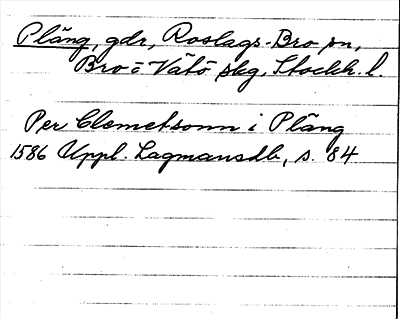 Pläng, gdr, Roslags-Bro sn,
Bro o Vätö skg, Stockh. l.
Per Clemetsonn i Pläng
1586 Uppl. Lagmansdb, s. 84